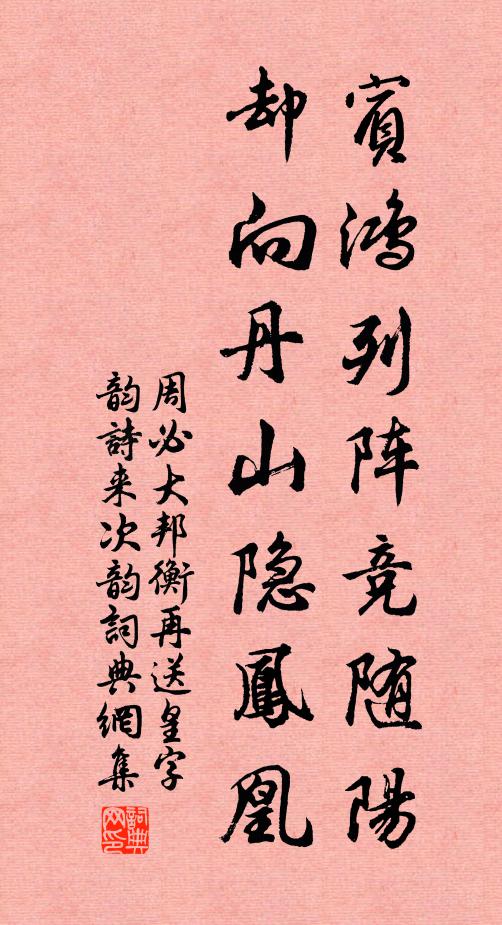 賓鴻列阵竞随陽
却向丹山隐鳳凰
周必大邦衡再送皇字
韵詩来次韵詞典網集
詞典
网印